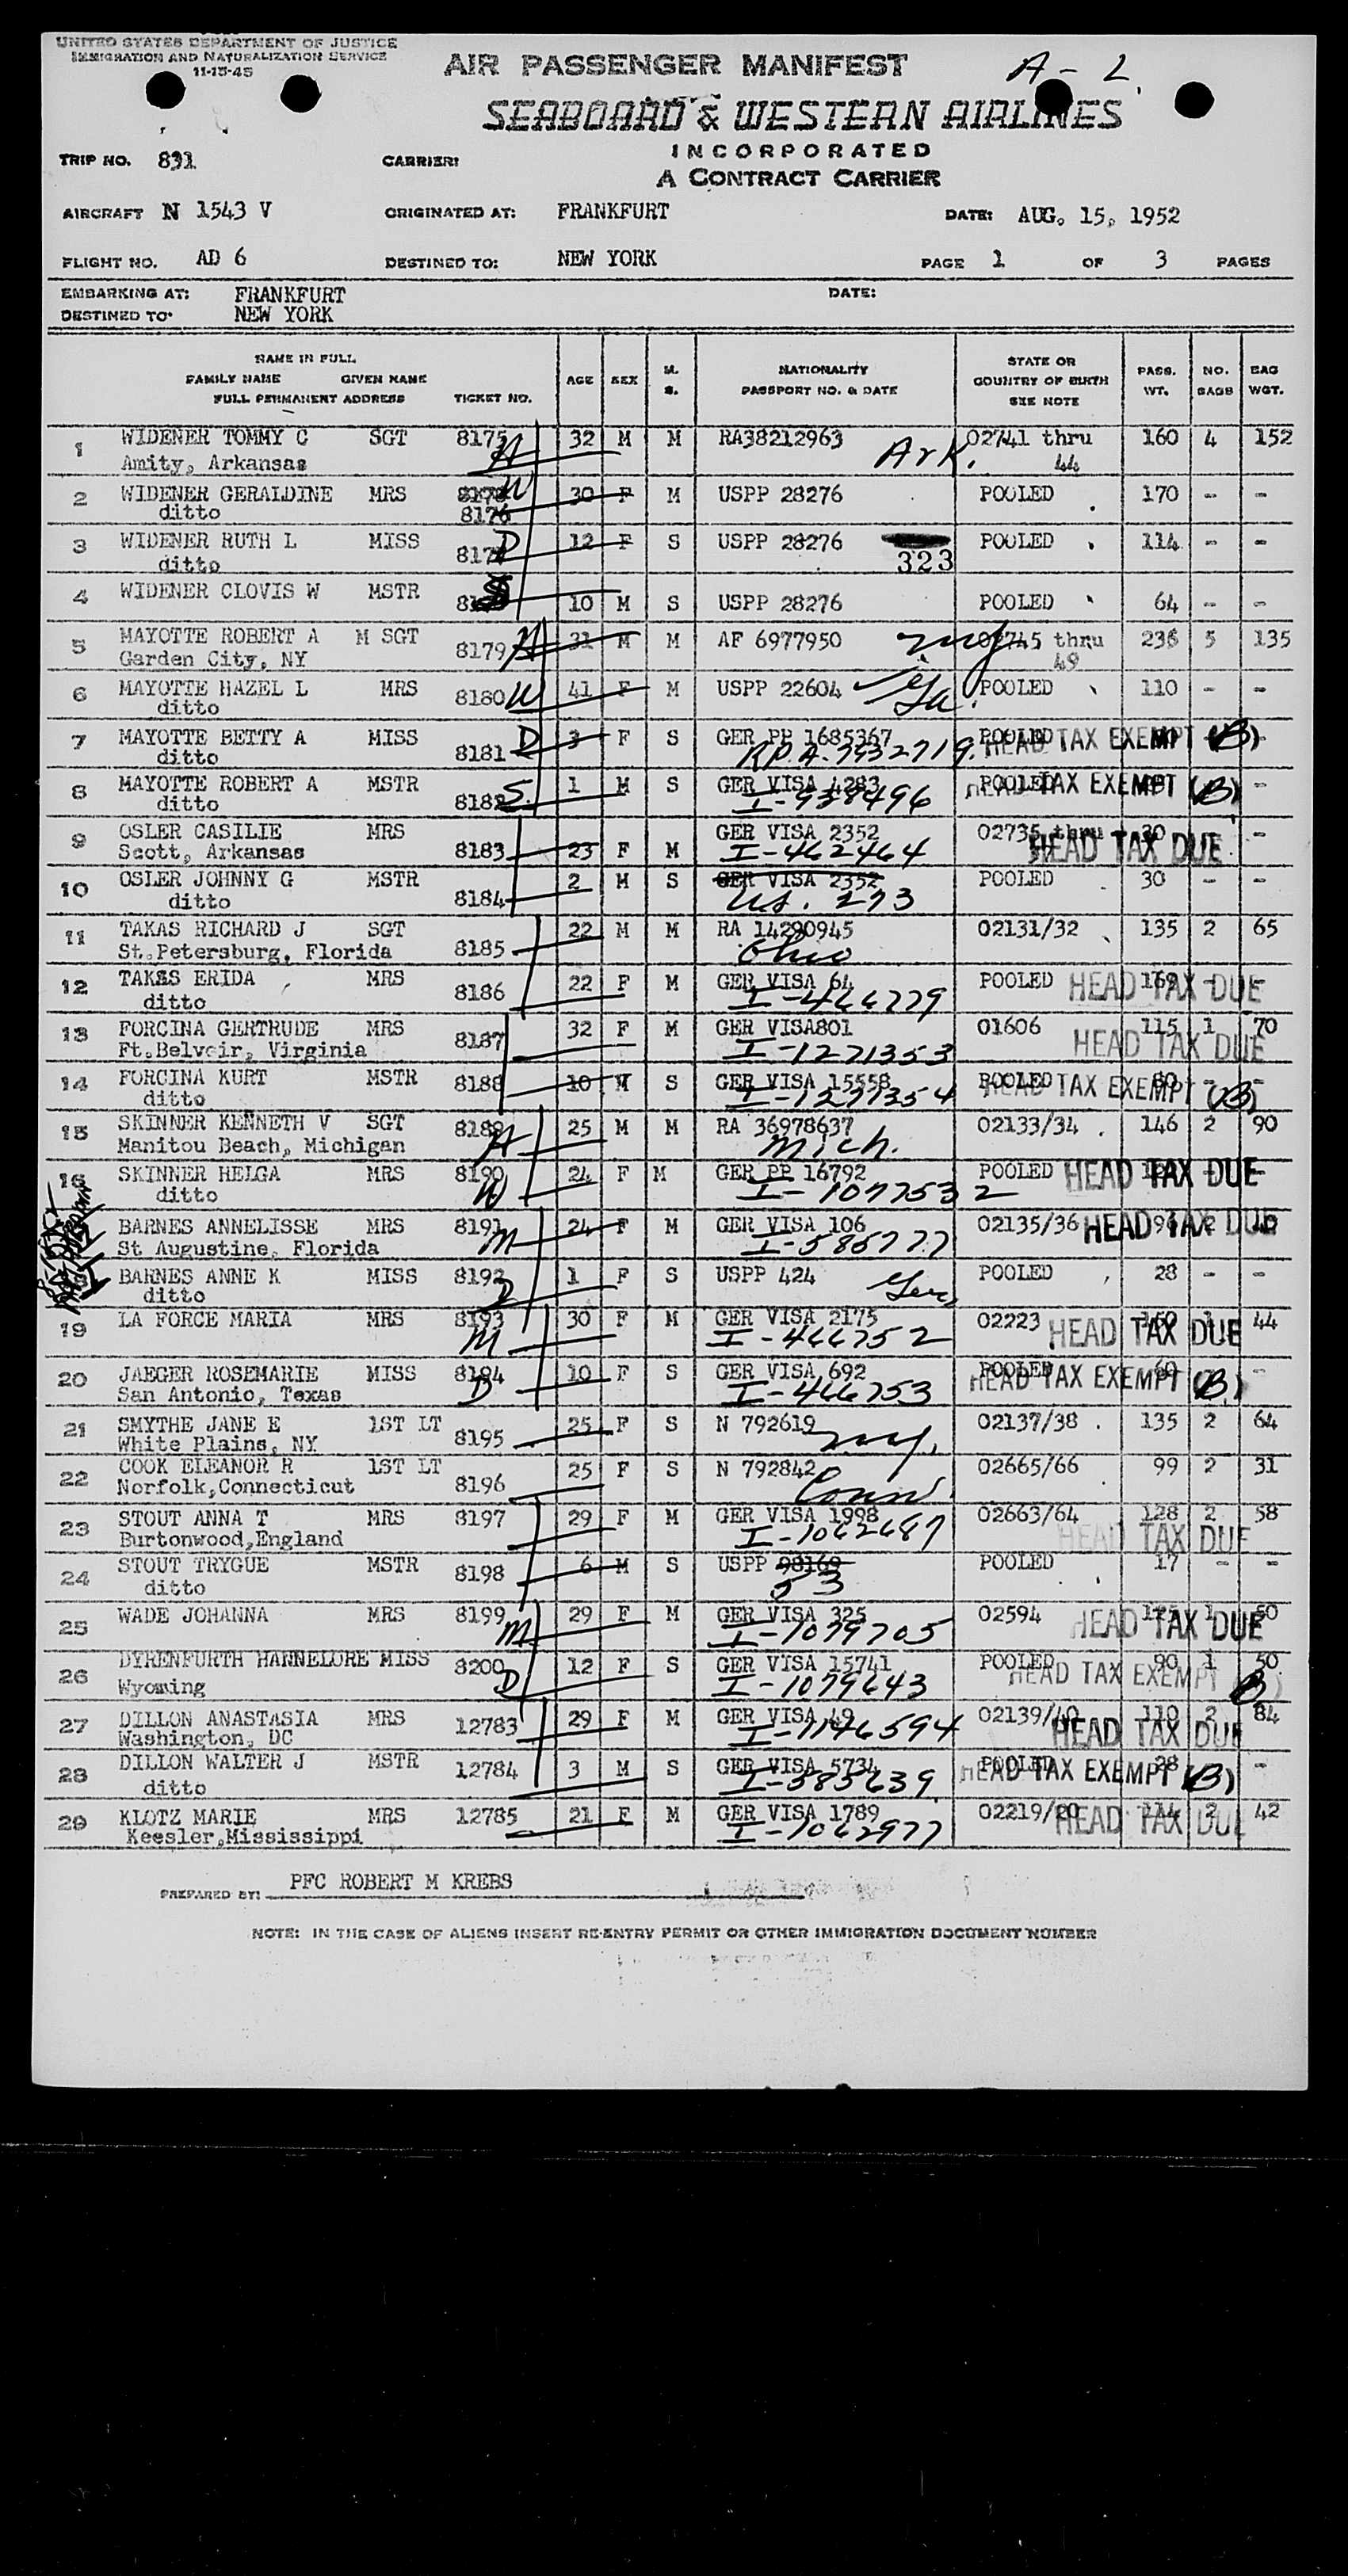 UNITED STATES DEPARTMENT OF JUSTICE
IMMIGRATION AND NATURALIZATION SERVICE
11-15-45
AIR PASSENGER MANIFEST A - L
SEABOARD & WESTERN AIRLINES
INCORPORATED
A CONTRACT CARRIER
TRIP NO. 831 CARRIER:
AIRCRAFT N 1543 V ORIGINATED AT: FRANKFURT DATE: AUG. 15, 1952
FLIGHT NO. AD 6 DESTINED TO: NEW YORK PAGE 1 OF 3 PAGES
EMBARKING AT: FRANKFURT DATE:
DESTINED TO: NEW YORK
NAME IN FULL
FAMILY NAME GIVEN NAME
FULL PERMANENT ADDRESS TICKET NO. AGE SEX M. S. NATIONALITY PASSPORT NO. & DATE STATE OR COUNTRY OF BIRTH SEE NOTE PASS. WT. NO. BAGS BAG WGT.
1 WIDENER TOMMY C SGT 8175 32 M M RA38212963 02741 thru 160 4 152
Amity, Arkansas Ark. 44
2 WIDENER GERALDINE MRS W 30 F M USPP 28276 POOLED 170 - -
ditto 8176
3 WIDENER RUTH L MISS 8177 D 12 F S USPP 28276 POOLED 114 - -
ditto 323
4 WIDENER CLOVIS W MSTR 10 M S USPP 28276 POOLED 64 - -
5 MAYOTTE ROBERT A M SGT 8179 31 M M AF 6977950 02745 thru 236 5 135
Garden City, NY 49
6 MAYOTTE HAZEL L MRS 8180 W 41 F M USPP 22604 Ga. POOLED 110 - -
ditto
7 MAYOTTE BETTY A MISS 8181 D 3 F S GER PP 1685367 POOLED
ditto R.P.A-7932719. HEAD TAX EXEMPT (B)
8 MAYOTTE ROBERT A MSTR 8182 S. 1 M S GER VISA 4283 POOLED -
ditto I-938496 HEAD TAX EXEMPT (B)
9 OSLER CASILIE MRS GER VISA 2352 02735 thru 30 -
Scott, Arkansas 8183 23 F M I-462464 HEAD TAX DUE
10 OSLER JOHNNY G MSTR 8184 2 M S GER VISA 2352 POOLED 30 - -
ditto U.S. 273
11 TAKAS RICHARD J SGT 8185 22 M M RA 14290945 02131/32 135 2 65
St.Petersburg, Florida Ohio
12 TAKAS ERIDA MRS 8186 22 F M GER VISA 64 POOLED 169 - -
ditto I-466779 HEAD TAX DUE
13 FORCINA GERTRUDE MRS 8187 32 F M GER VISA801 01606 115 1 70
Ft.Belvoir, Virginia I-1271353 HEAD TAX DUE
14 FORCINA KURT MSTR 8188 10 M S GER VISA 15558 POOLED 80 - -
ditto I-1271354 HEAD TAX EXEMPT (B)
15 SKINNER KENNETH V SGT 8189 25 M M RA 36978637 02133/34 146 2 90
Manitou Beach, Michigan Mich.
16 SKINNER HELGA MRS 8190 24 F M GER PP 16792 POOLED
ditto W I-1077532 HEAD TAX DUE
BARNES ANNELISSE MRS 8191 24 F M GER VISA 106 02135/36 2
St Augustine, Florida M I-585777 HEAD TAX DUE
BARNES ANNE K MISS 8192 1 F S USPP 424 POOLED 28 - -
ditto D
19 LA FORCE MARIA MRS 8193 30 F M GER VISA 2175 02223 160 1 44
M I-466752 HEAD TAX DUE
20 JAEGER ROSEMARIE MISS 8194 10 F S GER VISA 692 POOLED 60 -
San Antonio, Texas D I-466753 HEAD TAX EXEMPT (B)
21 SMYTHE JANE E 1ST LT 8195 25 F S N 792619 02137/38 135 2 64
White Plains, NY
22 COOK ELEANOR R 1ST LT 8196 25 F S N 792842 02665/66 99 2 31
Norfolk,Connecticut Conn.
23 STOUT ANNA T MRS 8197 29 F M GER VISA 1998 02663/64 128 2 58
Burtonwood,England I-1062687 HEAD TAX DUE
24 STOUT TRYGUE MSTR 8198 6 M S USPP 98169 POOLED 17 - -
ditto 53
25 WADE JOHANNA MRS 8199 29 F M GER VISA 325 02594 1 50
M I-1079705 HEAD TAX DUE
26 DYRENFURTH HANNELORE MISS 8200 12 F S GER VISA 15741 POOLED 90 1 50
Wyoming D I-1079643 HEAD TAX EXEMPT (B)
27 DILLON ANASTASIA MRS 12783 29 F M GER VISA 49 02139/40 110 2 84
Washington, DC I-1146594 HEAD TAX DUE
28 DILLON WALTER J MSTR 12784 3 M S GER VISA 5734 POOLED 28 -
ditto I-585639 HEAD TAX EXEMPT (B)
29 KLOTZ MARIE MRS 12785 21 F M GER VISA 1789 02219/20 114 2 42
Keesler,Mississippi I-1062977 HEAD TAX DUE
PREPARED BY: PFC ROBERT M KREBS
NOTE: IN THE CASE OF ALIENS INSERT RE-ENTRY PERMIT OR OTHER IMMIGRATION DOCUMENT NUMBER